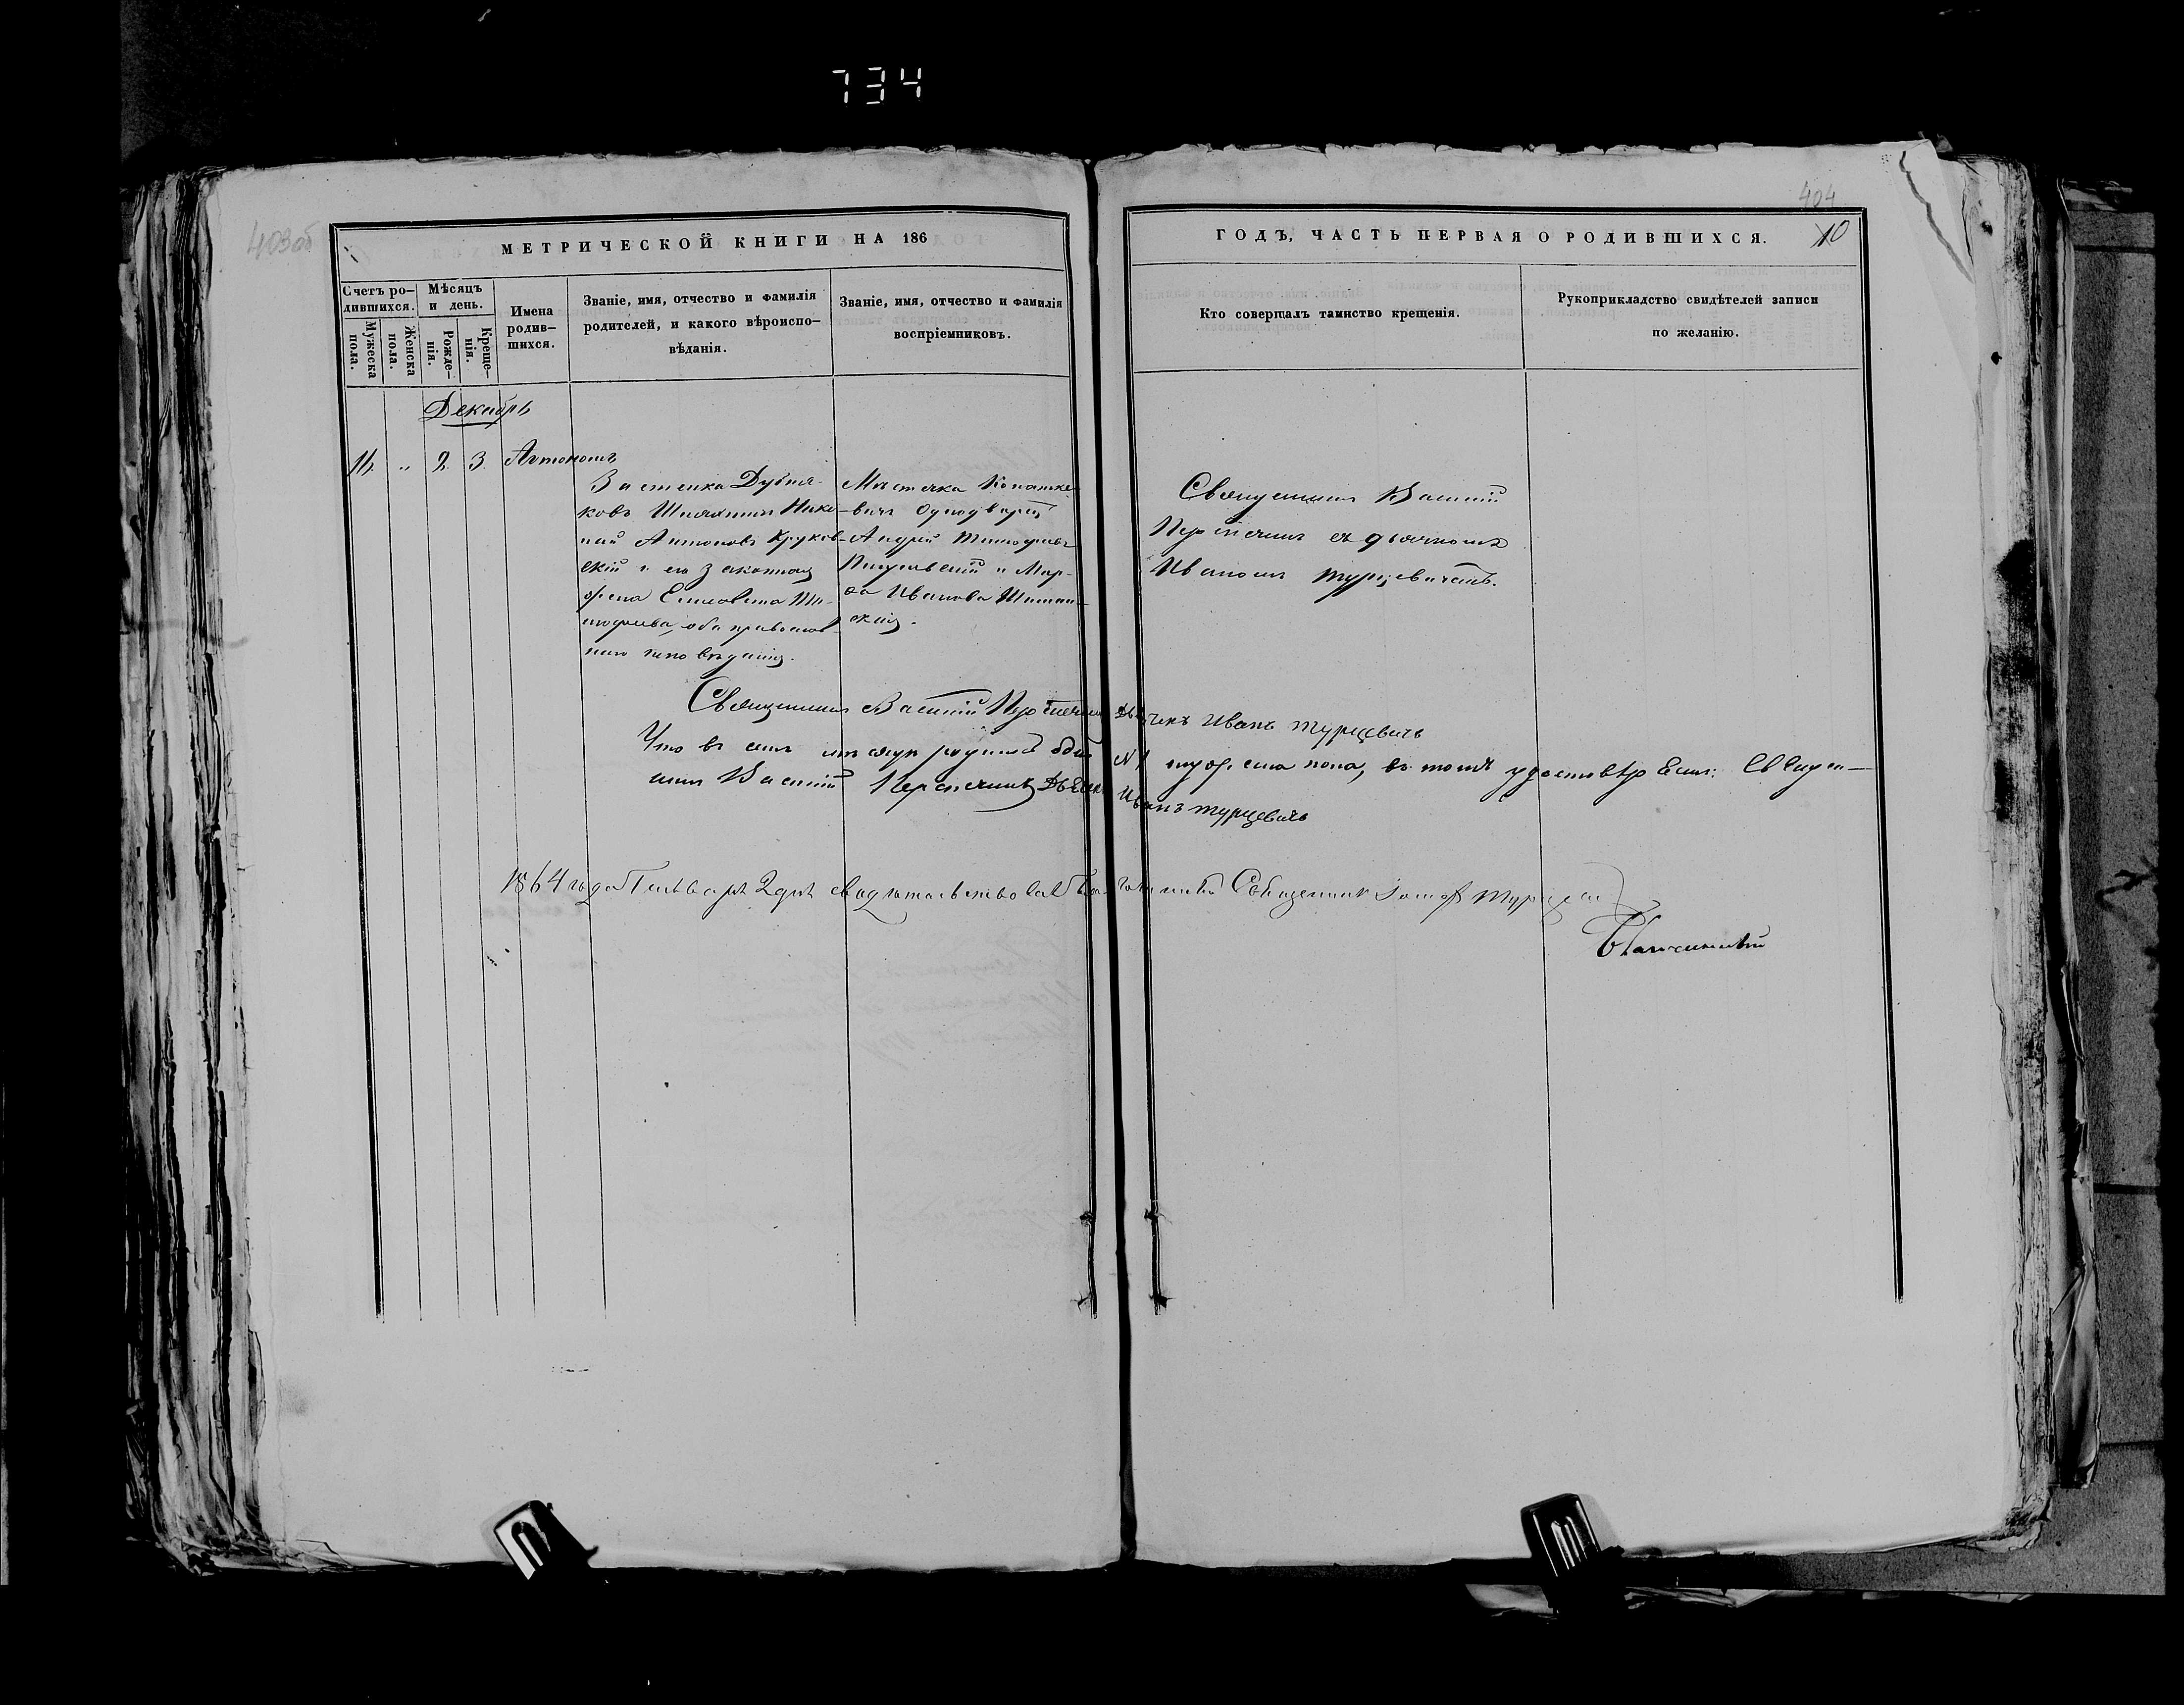 734
403об
МЕТРИЧЕСКОЙ КНИГИ НА 186
Счетъ ро-
дившихся.
Мужеска
пола.
Женска
пола.
Мѣсяцъ
и день.
Рожде-
нія.
Креще-
нія.
Имена
родив-
шихся.
Званіе, имя, отчество и фамилія
родителей, и какого вѣроиспо-
вѣданія.
Званіе, имя, отчество и фамилія
воспріемниковъ.
Декабрь
11. „ 2. 3.
Застенка Дубня-
ковъ Шляхтичъ Нико-
лай Антоновъ Круков-
скій и его законная
жена Елисавета Ти-
мофеева, оба православ-
наго исповѣданія.
Мѣстечка Копатке-
вичъ Однодворецъ
Андрей Тимофеевъ
и Мар-
фа Иванова
ская.
Священникъ Василій Дьячекъ Иванъ Турцевичъ
Что въ семъ мѣсяцѣ родился одинъ № 1 мужеска пола, въ томъ удостовѣряемъ: Священ-
никъ Василій Дьячекъ Иванъ Турцевичъ
1864 года Генваря 2 дня свидѣтельствовалъ Благочинный Священникъ
404
10
ГОДЪ, ЧАСТЬ ПЕРВАЯ О РОДИВШИХСЯ.
Кто совершалъ таинство крещенія.
Рукоприкладство свидѣтелей записи
по желанію.
Священникъ Василій
съ дьячкомъ
Иваномъ Турцевичемъ.